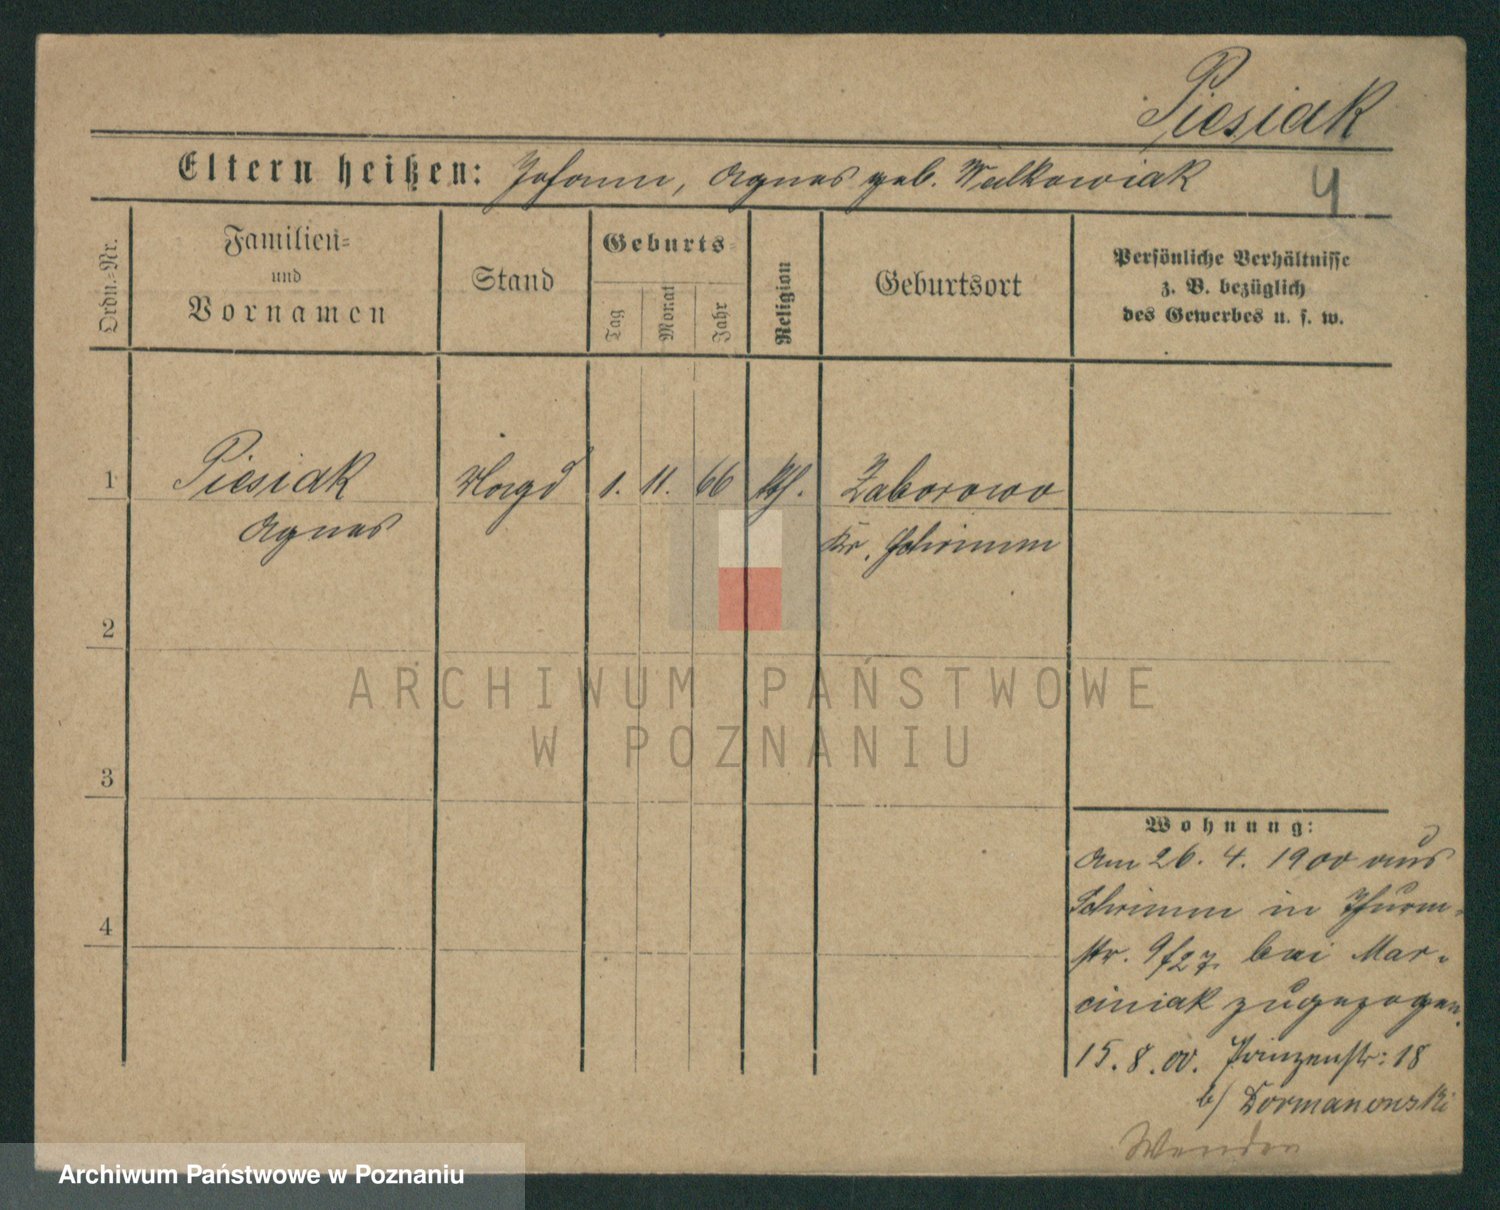 Piesiak
Eltern heißen: Johann, Agnes geb. Walkowiak
4
Ordn.=Nr.
Familien=
und
Vornamen
Stand
Geburts=
Tag
Monat
Jahr
Religion
Geburtsort
Persönliche Verhältnisse
z. B. bezüglich
des Gewerbes u. s. w.
1 Piesiak Magd 1. 11. 66 kth. Zaborowo
Agnes Kr. Schrimm
2
3
4
ARCHIWUM PAŃSTWOWE
W POZNANIU
Wohnung:
Am 26. 4. 1900 aus
Schrimm in Thurm-
str. 9/27 bei Mar-
ciniak zugezogen.
15. 8. 00. Prinzenstr: 18
b/ Dormanowski
Archiwum Państwowe w Poznaniu